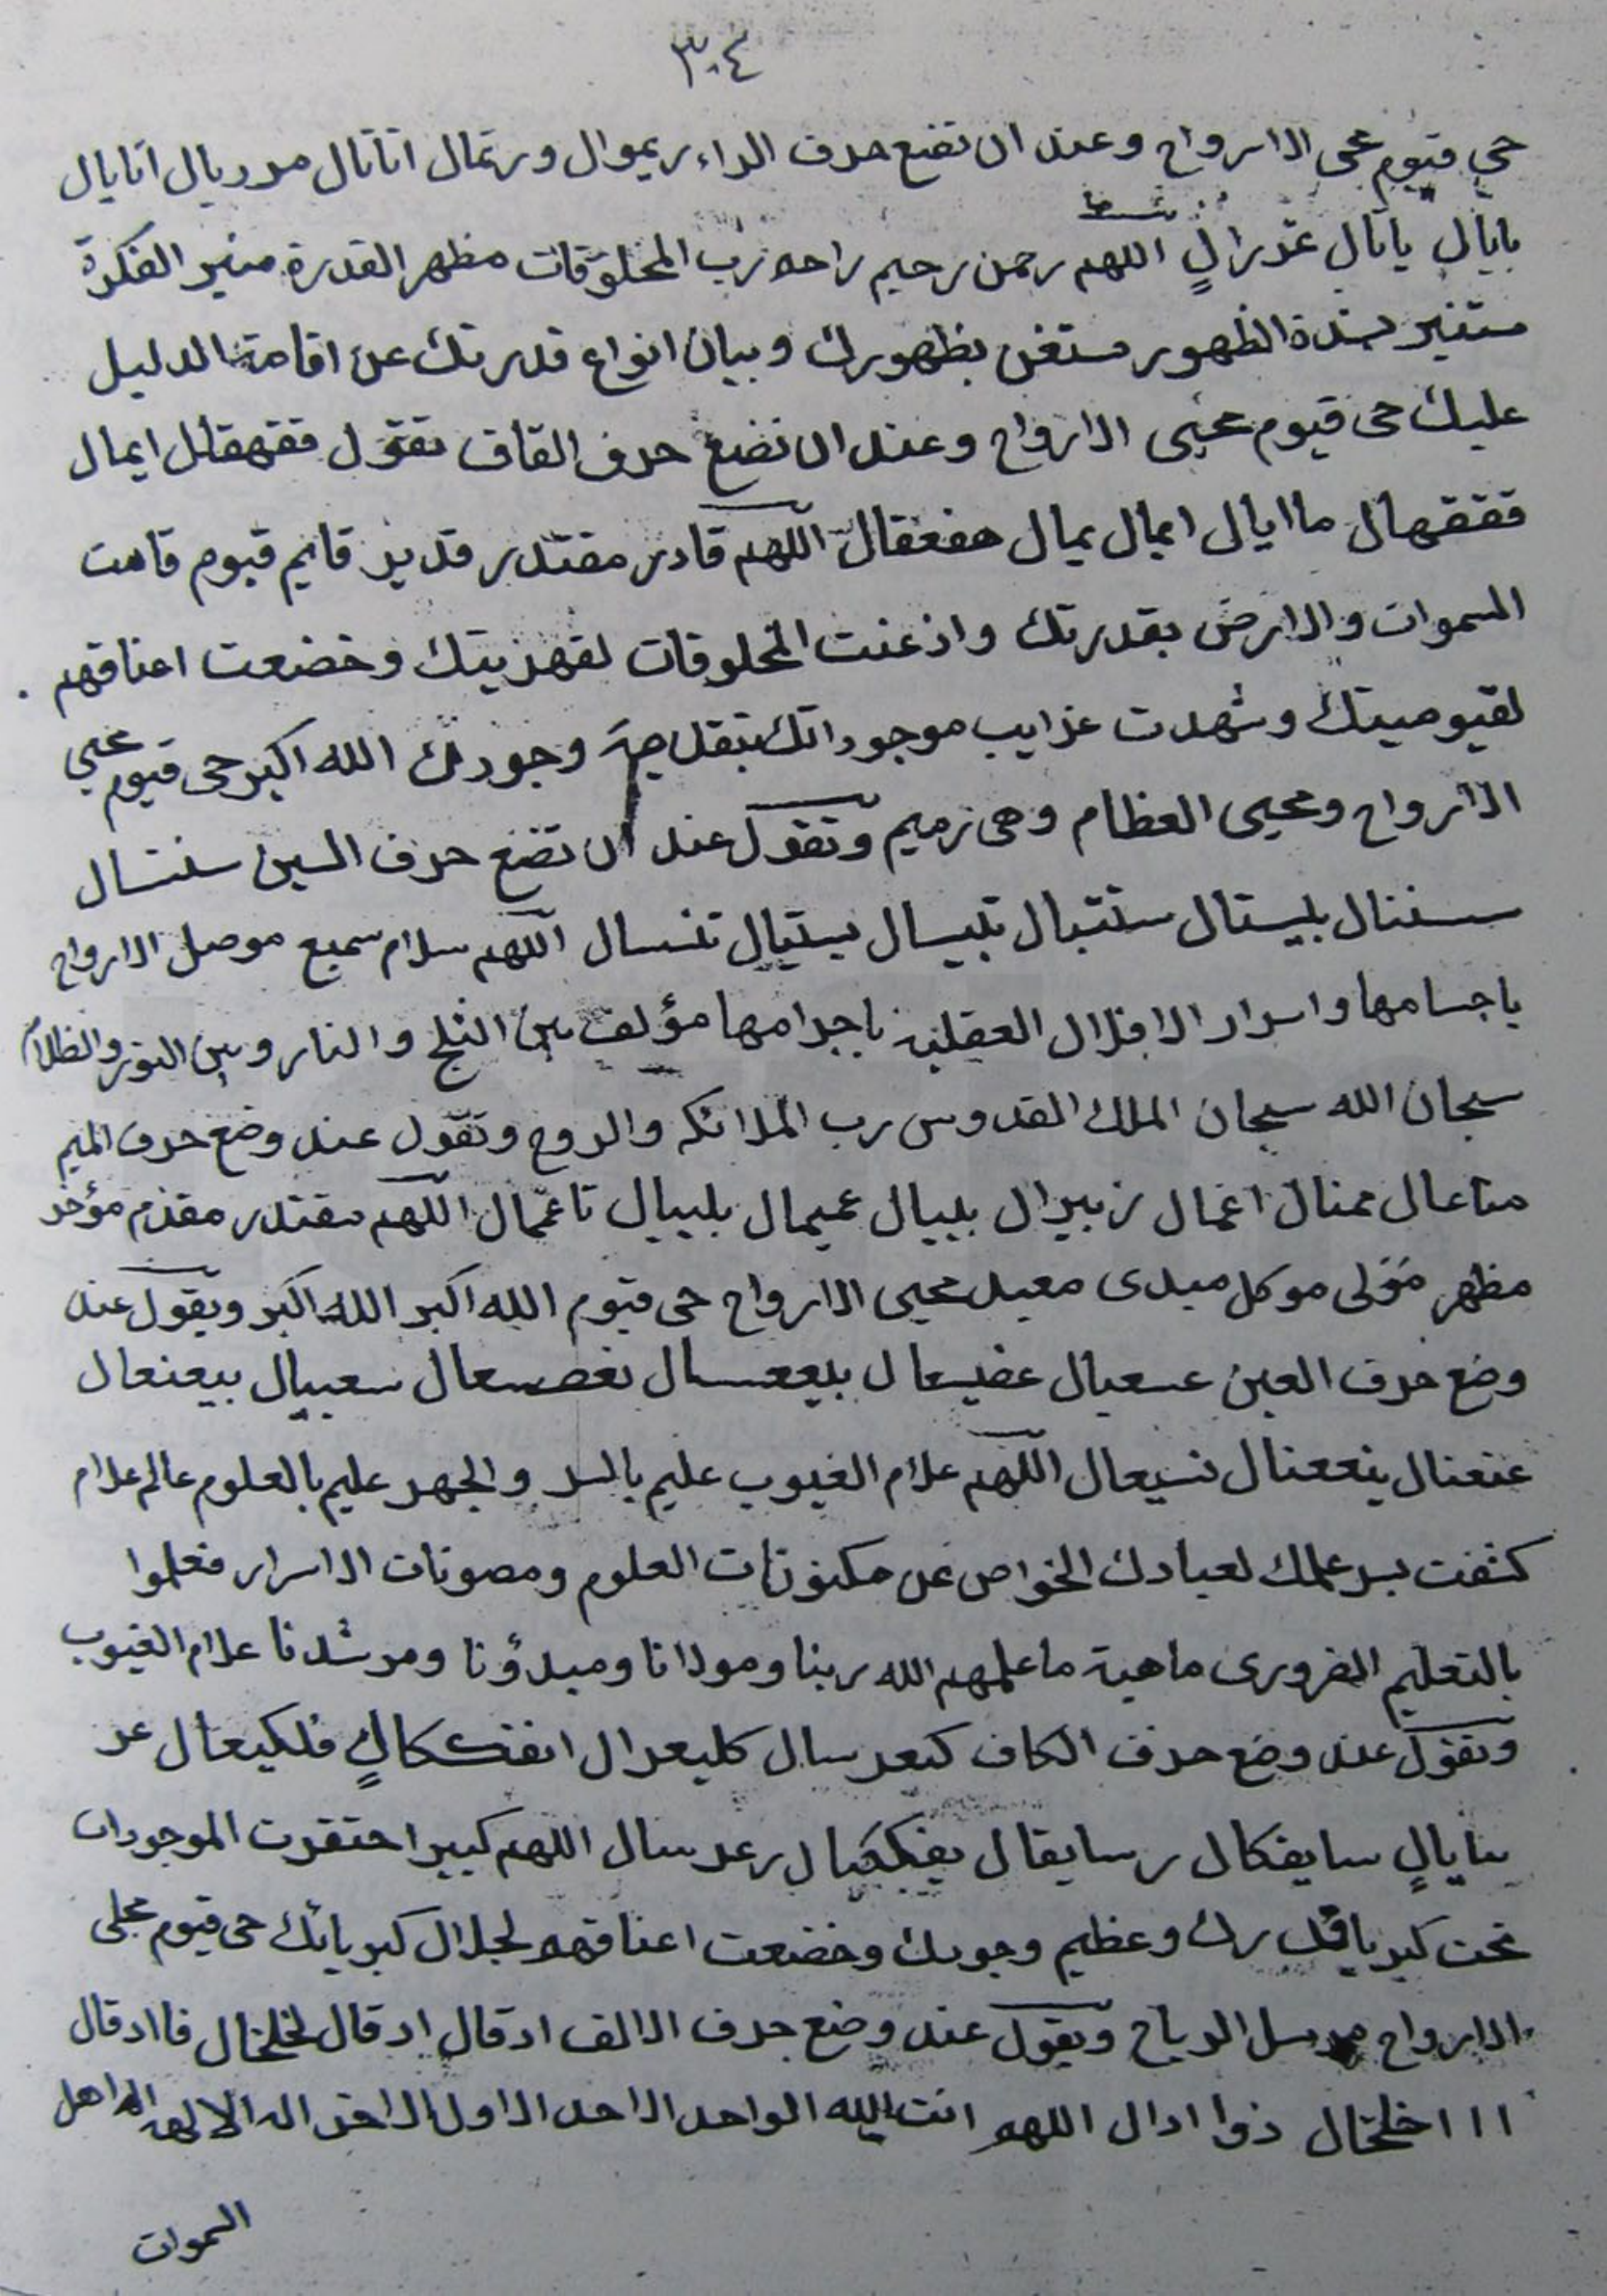 ٣٠٤
حي قيوم محي الارواح وعند ان تضع حرف الراء ريموال ورتمال اتاتال مدريال اتايال
بايال ياتال عدرال اللهم رحمن رحيم راحم رب المخلوقات مظهر القدرة منير الفكرة
مستنير لشدة الظهور مستغن بظهورك وبيان انواع قدرتك عن اقامة الدليل
عليك حى قيوم محيى الارواح وعند ان تضع حرف القاف تقول ققهقال ايمال
ققفهال ماايال ايمال يمال اللهم قادر مقتدر قدير قايم قيوم قامت
السموات والارض بقدرتك واذعنت المخلوقات لقهريتك وخضعت اعناقهم
لقيوميتك وشهدت غرايب موجوداتك وجودك الله اكبر حى قيوم محيي
الارواح ومحيى العظام وهى رميم وتقول عند ان تضع حرف السين سنتسال
بليستال ستتبال تلبيسال يستيال تنسال اللهم سلام سميع موصل الارواح
باجسامها واسرار الافلاك العقلية باجرامها مؤلف بين الثلج والنار وبين النور والظلام
سبحان الله سبحان الملك القدوس رب الملائكه والروح وتقول عند وضع حرف الميم
مناعال ممنال اغمال زبيرال بلييال عميمال بلييال تاعمال اللهم مقتدر مقدم مؤخر
مظهر مولى موكل مبدى معيد محيى الارواح حى قيوم الله اكبر الله اكبر ويقول عند
وضع حرف العين عسعيال عفيسعال بليععسال سعييال بيعنعال
عنعنال ينععنال نسيعال اللهم علام الغيوب عليم بالسر والجهر عليم بالعلوم عالم علام
كشفت بسر علمك لعبادك الخواص عن مكنونات العلوم ومصونات الاسرار فعلموا
بالتعليم الضرورى ماهية ما علمهم الله ربنا ومولانا ومبدؤنا ومرشدنا علام الغيوب
وتقول عند وضع حرف الكاف كيعرسال كليعرال انفككال فلكيعال عر
سايال سايفكال رسايقال يفككيال رعرسال اللهم كبير احتقرت الموجودات
تحت كبريا وعظيم وجودك وخضعت اعناقهم لجلال كبريائك حى قيوم محي
الارواح مرسل الرياح ويقول عند وضع حرف الالف ادقال ادقال لخلخال فاادقال
ااا اخلخال ذواادال اللهم انت الله الواحد الاحد الاول الاخر اله الالهه اله اهل
السموات